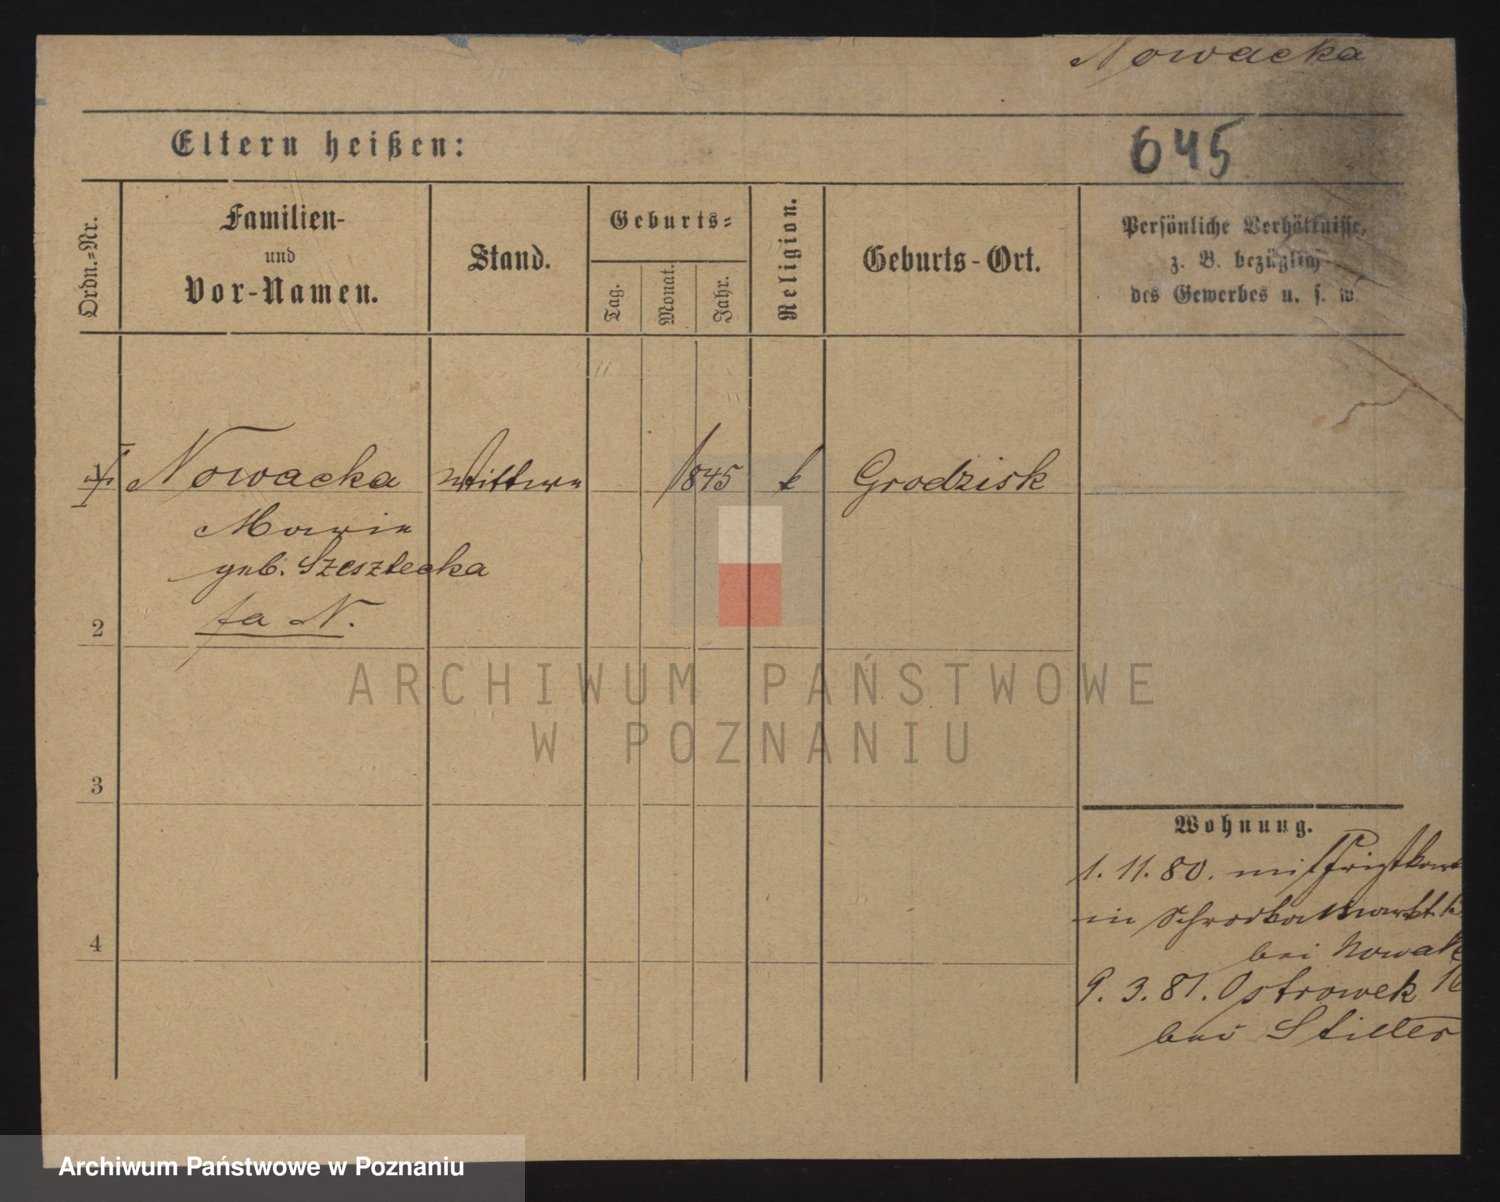 Nowacka
Eltern heißen:
645
Ordn.=Nr.
Familien-
und
Vor-Namen.
Stand.
Geburts=
Tag.
Monat.
Jahr.
Religion.
Geburts-Ort.
Persönliche Verhältnisse,
z. B. bezüglich
des Gewerbes u. s. w.
1 Nowacka Wittwe 1845 k Grodzisk
Marie
geb. Szesztecka
fa N.
2
3
4
Wohnung.
1. 11. 80. mit
in Schrodka Markt
bei Nowak
9. 3. 81. Ostrowek
bei Stiller
ARCHIWUM PAŃSTWOWE
W POZNANIU
Archiwum Państwowe w Poznaniu